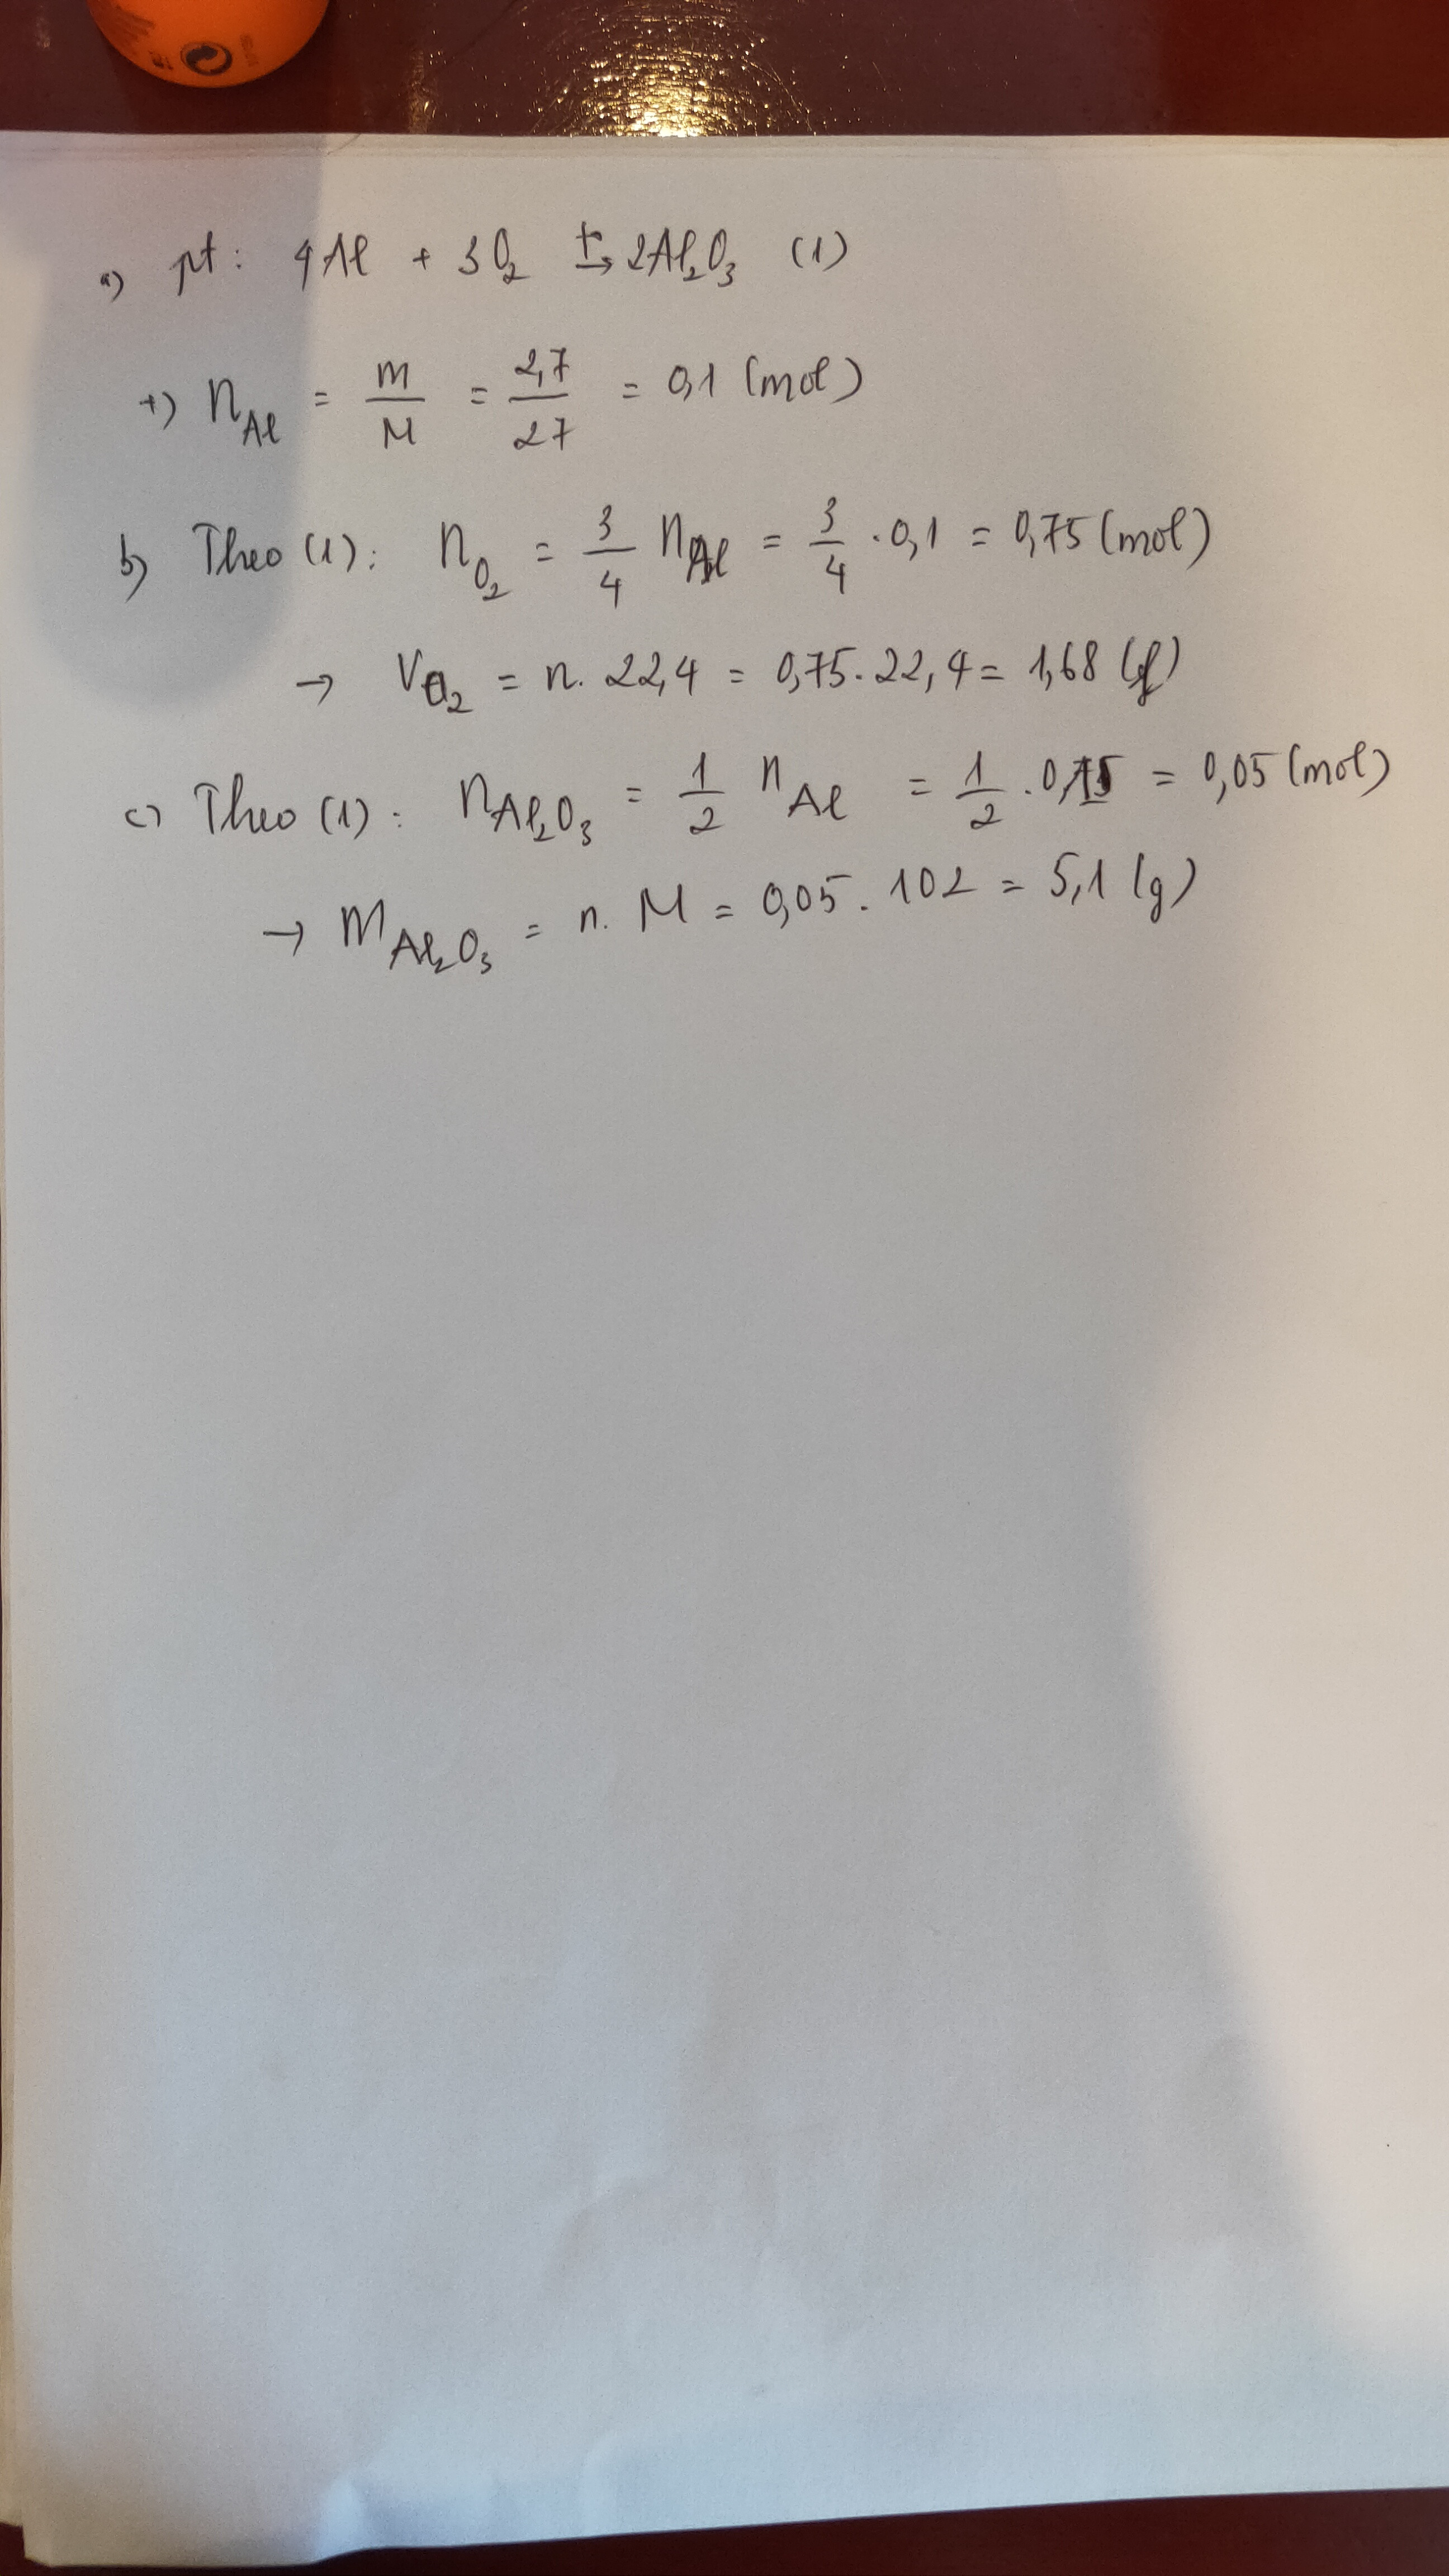 a) pt: 4Al + 3O₂ t°→ 2Al₂O₃ (1)
+) nAl = m/M = 2,7/27 = 0,1 (mol)
b) Theo (1): nO₂ = 3/4 nAl = 3/4 . 0,1 = 0,75 (mol)
→ VO₂ = n. 22,4 = 0,75. 22,4 = 1,68 (l)
c) Theo (1): nAl₂O₃ = 1/2 nAl = 1/2 . = 0,05 (mol)
→ mAl₂O₃ = n. M = 0,05. 102 = 5,1 (g)